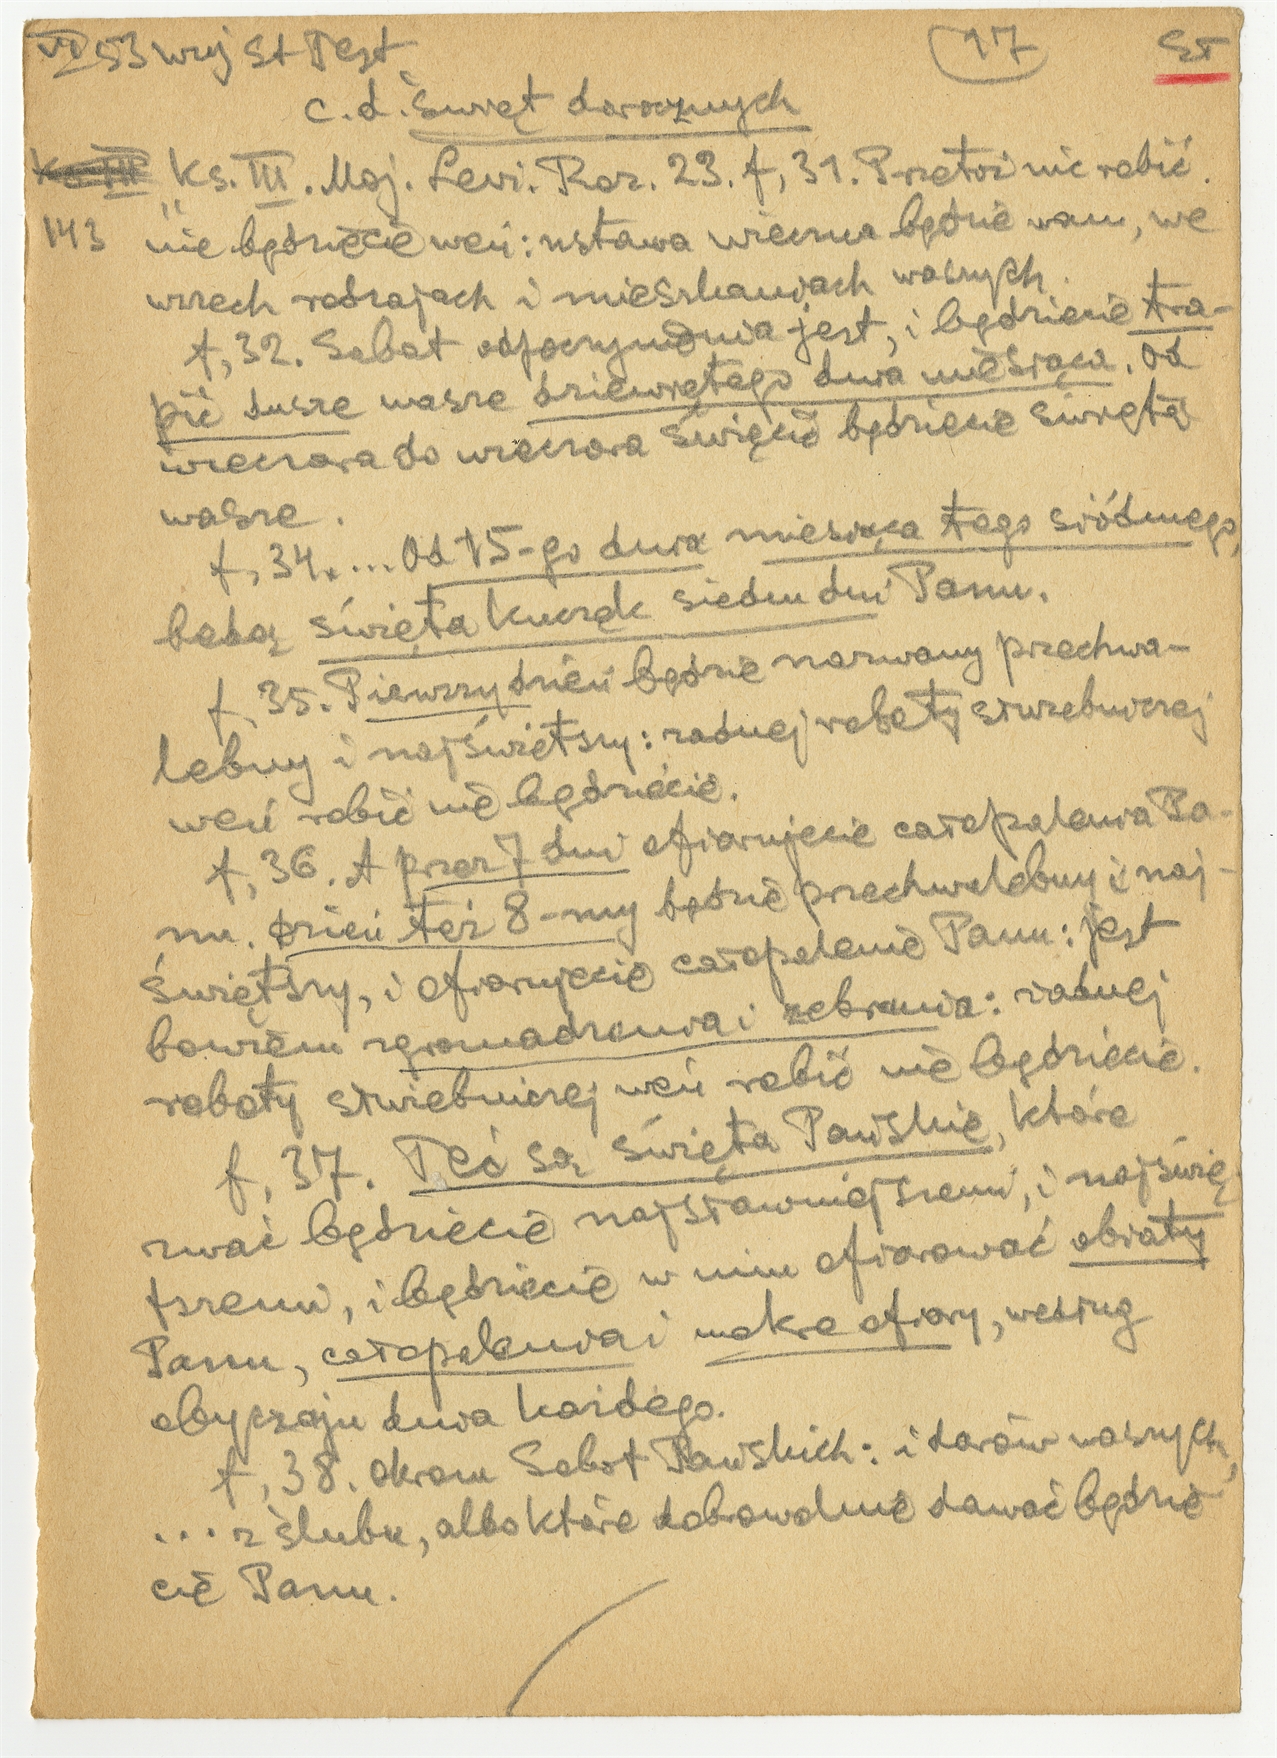 VI 53 wuj St Test 17 ST
c.d. Świąt dorocznych
Ks. III. Moj. Levi. Roz. 23. f, 31. Przetoż nic robić
143 nie będziecie weń: ustawa wieczna będzie wam, we
wszech rodzajach i mieszkaniach waszych.
f, 32. Sabat odpoczynienia jest, i będziecie tra-
pić dusze wasze dziewiętego dnia miesiąca. Od
wieczora do wieczora święcić będziecie święta
wasze.
f, 34. ... Od 15-go dnia miesiąca tego siódmego,
będą święta kuczek siedm dni Panu.
f, 35. Pierwszy dzień będzie nazwany przechwa-
lebny i najświętszy: żadnej roboty służebniczej
weń robić nie będziecie.
f, 36. A przez 7 dni ofiarujecie całopalenia Pa-
nu. dzień też 8-my będzie przechwalebny i naj-
świętszy, i ofiarujecie całopalenie Panu: jest
bowiem zgromadzenia i zebrania: żadnej
roboty służebniczej weń robić nie będziecie.
f, 37. Teć są święta Pańskie, które
zwać będziecie najsławniejszemi, i najświę
tszemi, i będziecie w nim ofiarować obiaty
Panu, całopalenia i mokre ofiary, według
obyczaju dnia każdego.
f, 38. okrom Sobot Pańskich: i darów waszych,
... z ślubu, albo które dobrowolnie dawać będzie
cie Panu.